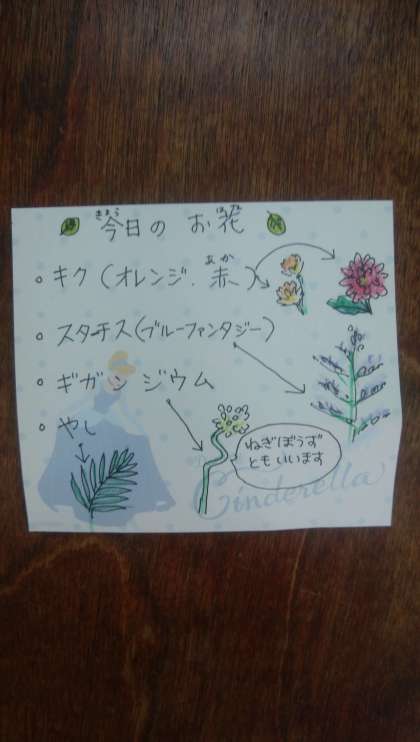 今日の お花
きょう はな
・キク(オレンジ.赤)
あか
・スターチス(ブルーファンタジー)
・ギガンジウム
・やし
ねぎぼうず
ともいいます
Cinderella